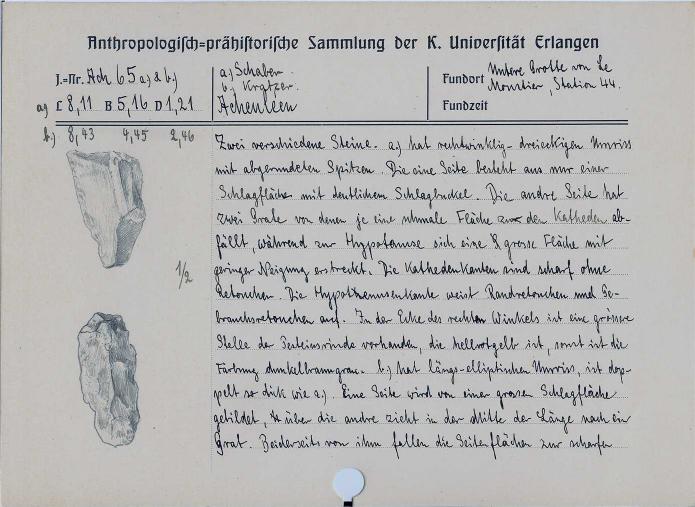 Anthropologisch=prähistorische Sammlung der K. Universität Erlangen
J.=Nr. Ach 65 a) & b)
a) Schaber.
b) Kratzer.
Acheuleen
a) L 8,11 B 5,16 D 1,21
b) 8,43 4,45 2,46
Fundort Untere Grotte von Le
Moustier, Station 44.
Fundzeit
1/2
Zwei verschiedene Steine. a) hat rechtwinklig-dreieckigen Umriss
mit abgerundeten Spitzen. Die eine Seite besteht aus nur einer
Schlagfläche mit deutlichem Schlagbuckel. Die andre Seite hat
zwei Grate von denen je eine schmale Fläche zu den Katheden ab-
fällt, während zur Hypotenuse sich eine grosse Fläche mit
geringer Neigung erstreckt. Die Kathedenkanten sind scharf ohne
Retouchen. Die Hypothenusenkante weist Randretouchen und Ge-
brauchsretouchen auf. In der Ecke des rechten Winkels ist eine grössere
Stelle der vorhanden, die hellrotgelb ist, sonst ist die
Färbung dunkelbraungrau. b) hat längs-elliptischen Umriss, ist dop-
pelt so dick wie a). Eine Seite wird von einer grossen Schlagfläche
gebildet, über die andre zieht in der Mitte der Länge nach ein
Grat. Beiderseits von ihm fallen die Seitenflächen zur scharfen